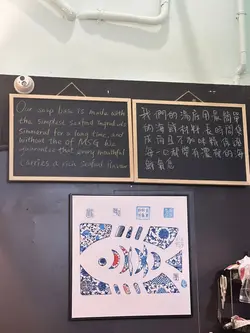 Our soup base is made with
the simplest seafood ingredients
simmered for a long time, and
without the of MSG. We
guarantee that every mouthful
carries a rich seafood flavour
我們的湯底用最簡單
的海鮮材料長時間熬
成而且不加味精保證
每一口都
鮮氣息